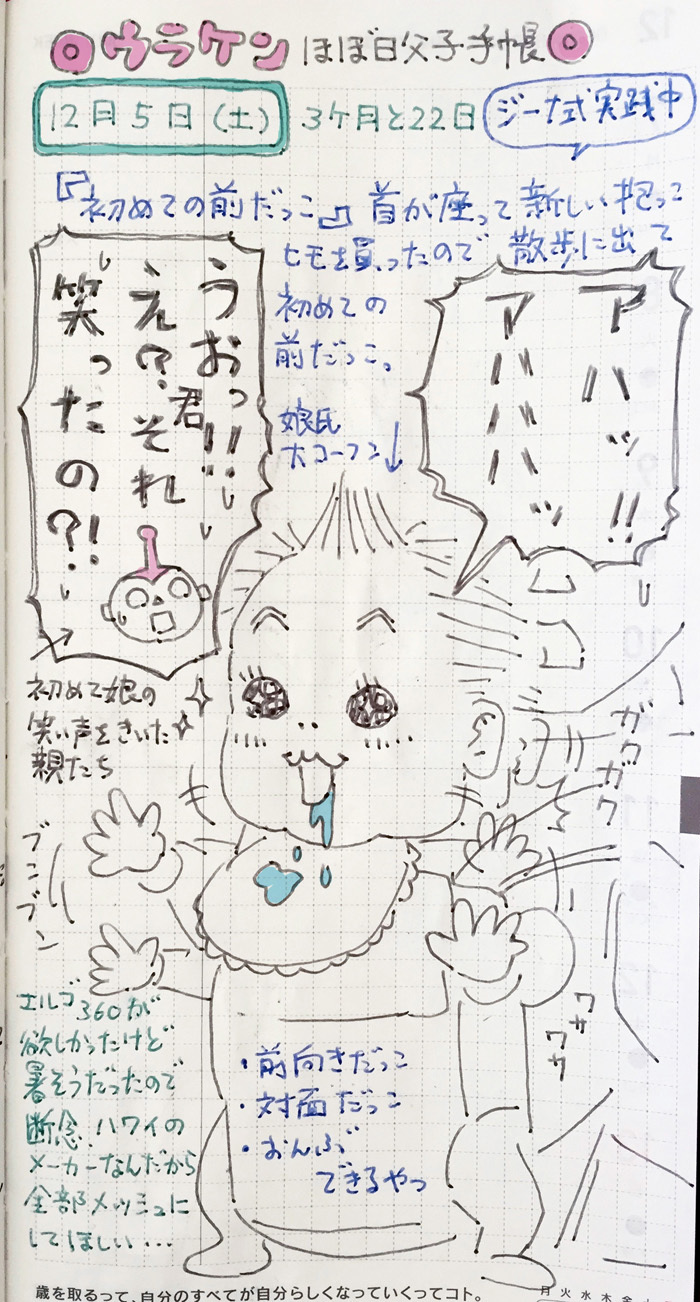 ウラケン ほぼ日父子手帳
12月5日(土) 3ケ月と22日 ジーナ式実践中
『初めての前だっこ』首が座って新しい抱っこ
ヒモを買ったので散歩に出て
初めての
前だっこ。
娘氏
大コーフン↓
うおっ!!
え?君それ
笑ったの?!
アハッ!!
アハハハハッ
初めて娘の
笑い声をきいた
親たち
ブンブン
ガクガク
ワサワサ
エルゴ360が
欲しかったけど
暑そうだったので
断念!ハワイの
メーカーなんだから
全部メッシュに
してほしい…
・前向きだっこ
・対面だっこ
・おんぶ
できるやつ
歳を取るって、自分のすべてが自分らしくなっていくってコト。
月火水木金